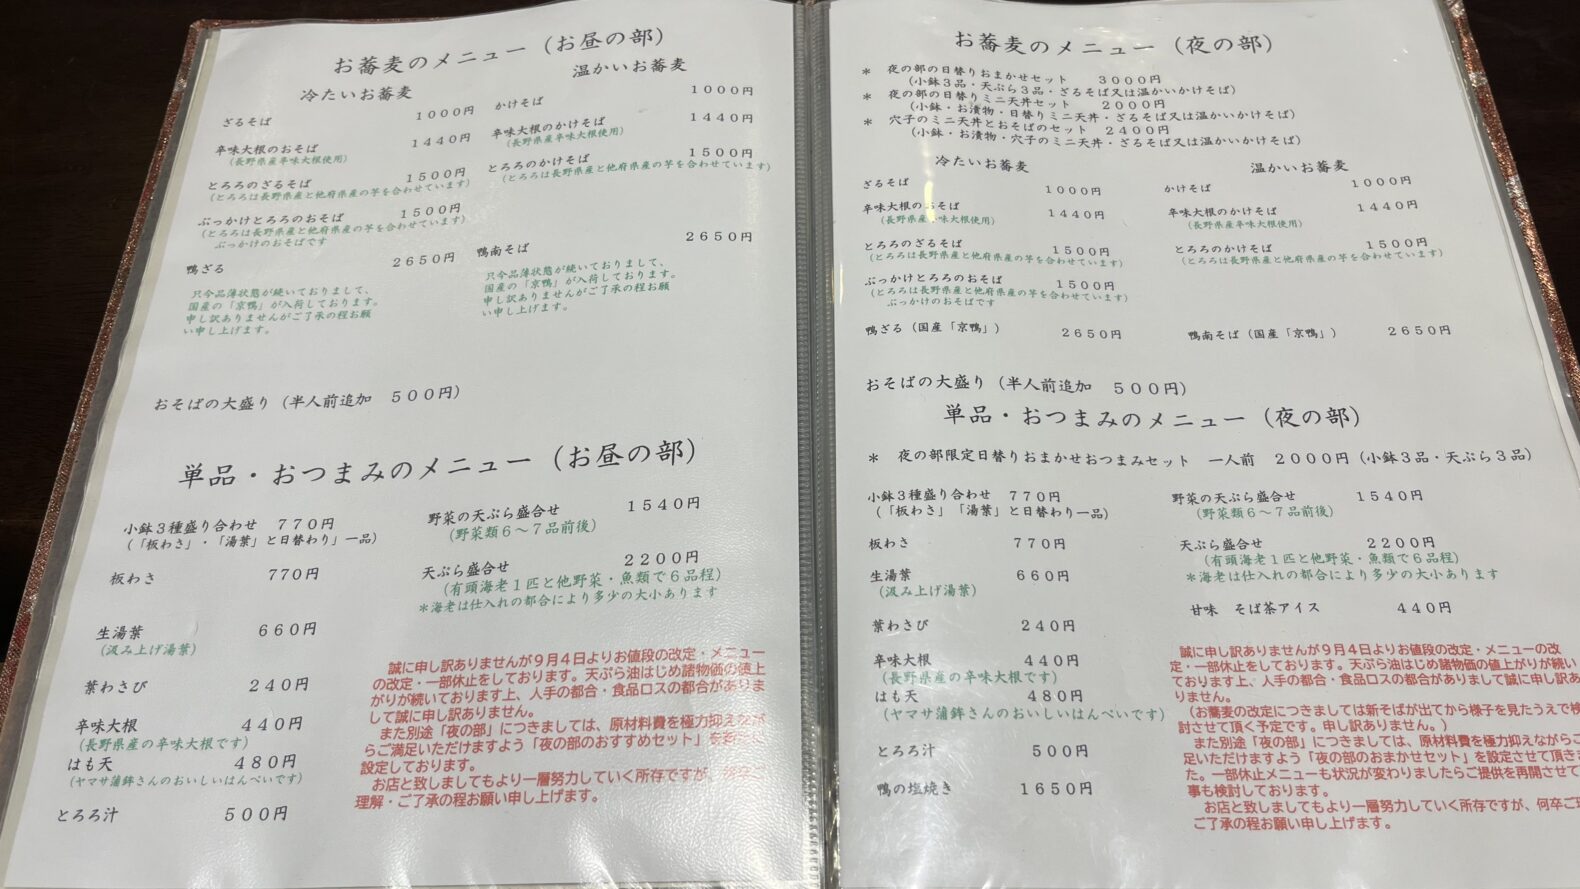 お蕎麦のメニュー（お昼の部）
冷たいお蕎麦
ざるそば　１０００円
辛味大根のおそば　１４４０円
（長野県産辛味大根使用）
とろろのざるそば　１５００円
（とろろは長野県産と他府県産の芋を合わせています）
ぶっかけとろろのおそば　１５００円
（とろろは長野県産と他府県産の芋を合わせています）
ぶっかけのおそばです
鴨ざる　２６５０円
只今品薄状態が続いておりまして、
国産の「京鴨」が入荷しております。
申し訳ありませんがご了承の程お願
い申し上げます。
温かいお蕎麦
かけそば　１０００円
辛味大根のかけそば　１４４０円
（長野県産辛味大根使用）
とろろのかけそば　１５００円
（とろろは長野県産と他府県産の芋を合わせています）
鴨南そば　２６５０円
只今品薄状態が続いておりまして、
国産の「京鴨」が入荷しております。
申し訳ありませんがご了承の程お願
い申し上げます。
おそばの大盛り（半人前追加　５００円）
単品・おつまみのメニュー（お昼の部）
小鉢３種盛り合わせ　７７０円
（「板わさ」・「湯葉」と日替わり」一品）
板わさ　７７０円
生湯葉　６６０円
（汲み上げ湯葉）
葉わさび　２４０円
辛味大根　４４０円
（長野県産の辛味大根です）
はも天　４８０円
（ヤマサ蒲鉾さんのおいしいはんぺいです）
とろろ汁　５００円
野菜の天ぷら盛合せ　１５４０円
（野菜類６～７品前後）
天ぷら盛合せ　２２００円
（有頭海老１匹と他野菜・魚類で６品程）
＊海老は仕入れの都合により多少の大小あります
誠に申し訳ありませんが９月４日よりお値段の改定・メニュー
の改定・一部休止をしております。天ぷら油はじめ諸物価の値上
がりが続いております上、人手の都合・食品ロスの都合がありま
して誠に申し訳ありません。
また別途「夜の部」につきましては、原材料費を極力抑えなが
らご満足いただけますよう「夜の部のおすすめセット」を
設定しております。
お店と致しましてもより一層努力していく所存ですが、何卒ご
理解・ご了承の程お願い申し上げます。
お蕎麦のメニュー（夜の部）
＊　夜の部の日替りおまかせセット　３０００円
（小鉢３品・天ぷら３品・ざるそば又は温かいかけそば）
＊　夜の部の日替りミニ天丼セット　２０００円
（小鉢・お漬物・日替りミニ天丼・ざるそば又は温かいかけそば）
＊　穴子のミニ天丼とおそばのセット　２４００円
（小鉢・お漬物・穴子のミニ天丼・ざるそば又は温かいかけそば）
冷たいお蕎麦
ざるそば　１０００円
辛味大根のおそば　１４４０円
（長野県産辛味大根使用）
とろろのざるそば　１５００円
（とろろは長野県産と他府県産の芋を合わせています）
ぶっかけとろろのおそば　１５００円
（とろろは長野県産と他府県産の芋を合わせています）
ぶっかけのおそばです
鴨ざる（国産「京鴨」）　２６５０円
温かいお蕎麦
かけそば　１０００円
辛味大根のかけそば　１４４０円
（長野県産辛味大根使用）
とろろのかけそば　１５００円
（とろろは長野県産と他府県産の芋を合わせています）
鴨南そば（国産「京鴨」）　２６５０円
おそばの大盛り（半人前追加　５００円）
単品・おつまみのメニュー（夜の部）
＊　夜の部限定日替りおまかせおつまみセット　一人前　２０００円（小鉢３品・天ぷら３品）
小鉢３種盛り合わせ　７７０円
（「板わさ」「湯葉」と日替わり一品）
板わさ　７７０円
生湯葉　６６０円
（汲み上げ湯葉）
葉わさび　２４０円
辛味大根　４４０円
（長野県産の辛味大根です）
はも天　４８０円
（ヤマサ蒲鉾さんのおいしいはんぺいです）
とろろ汁　５００円
鴨の塩焼き　１６５０円
野菜の天ぷら盛合せ　１５４０円
（野菜類６～７品前後）
天ぷら盛合せ　２２００円
（有頭海老１匹と他野菜・魚類で６品程）
＊海老は仕入れの都合により多少の大小あります
甘味　そば茶アイス　４４０円
誠に申し訳ありませんが９月４日よりお値段の改定・メニューの改
定・一部休止をしております。天ぷら油はじめ諸物価の値上がりが続い
ております上、人手の都合・食品ロスの都合がありまして誠に申し訳あ
りません。
（お蕎麦の改定につきましては新そばが出てから様子を見たうえで検
討させて頂く予定です。申し訳ありません。）
また別途「夜の部」につきましては、原材料費を極力抑えながらご
足いただけますよう「夜の部のおまかせセット」を設定させて頂きま
た。一部休止メニューも状況が変わりましたらご提供を再開させて
事も検討しております。
お店と致しましてもより一層努力していく所存ですが、何卒ご理
ご了承の程お願い申し上げます。